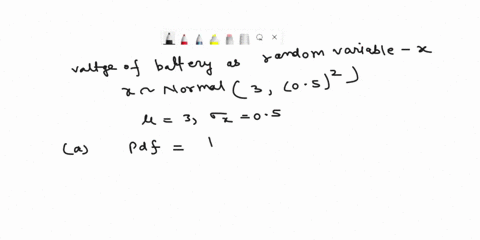 valtge of battery as random variable - x
x ~ Normal ( 3, (0.5)² )
μ = 3, σx = 0.5
(a) Pdf = 1